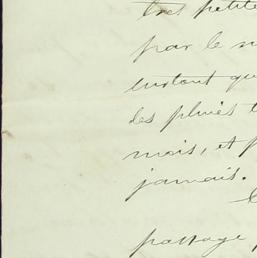 très petite
par le
surtout qu
des pluies
mois, et
jamais.
passage